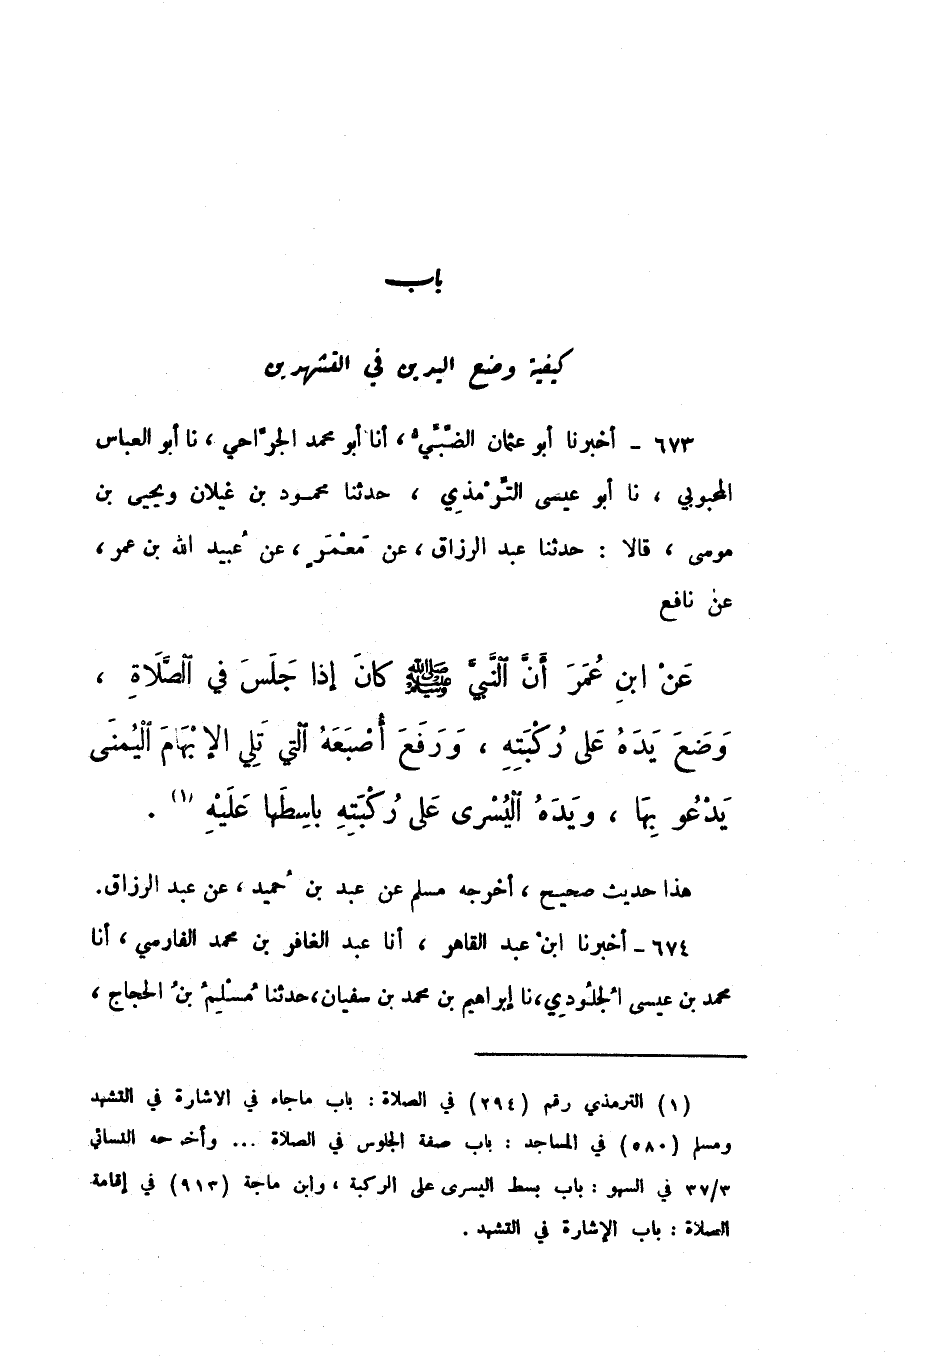 باب
كيفية وضع اليدين في التشهدين
٦٧٣ - أخبرنا أبو عثمان الضَّبِّيُّ ، أنا أبو محمد الجرَّاحي ، نا أبو العباس
المحبوبي ، نا أبو عيسى التِّرْمذي ، حدثنا محمود بن غيلان ويحيى بن
موسى ، قالا : حدثنا عبد الرزاق ، عن مَعْمَرٍ ، عن عُبيد الله بن عمر ،
عن نافع
عَنْ ابنِ عُمَرَ أَنَّ النَّبِيَّ ﷺ كانَ إذا جَلَسَ في الصَّلَاةِ ،
وَضَعَ يَدَهُ عَلى رُكْبَتِهِ ، وَرَفَعَ أُصْبَعَهُ الَّتي تَلِي الإبْهَامَ اليُمنَى
يَدْعُو بِهَا ، ويَدَهُ اليُسْرى عَلى رُكْبَتِهِ باسِطَها عَلَيْهِ (١) .
هذا حديث صحيح ، أخرجه مسلم عن عبد بن حُميد ، عن عبد الرزاق.
٦٧٤ - أخبرنا ابنُ عبد القاهر ، أنا عبد الغافر بن محمد الفارسي ، أنا
محمد بن عيسى الجُلُودي، نا إبراهيم بن محمد بن سفيان، حدثنا مُسْلِمُ بنُ الحجاج ،
(١) الترمذي رقم (٢٩٤) في الصلاة : باب ماجاء في الاشارة في التشهد
ومسلم (٥٨٠) في المساجد : باب صفة الجلوس في الصلاة ... وأخرجه النسائي
٣٧/٣ في السهو : باب بسط اليسرى على الركبة ، وابن ماجة (٩١٣) في إقامة
الصلاة : باب الإشارة في التشهد .